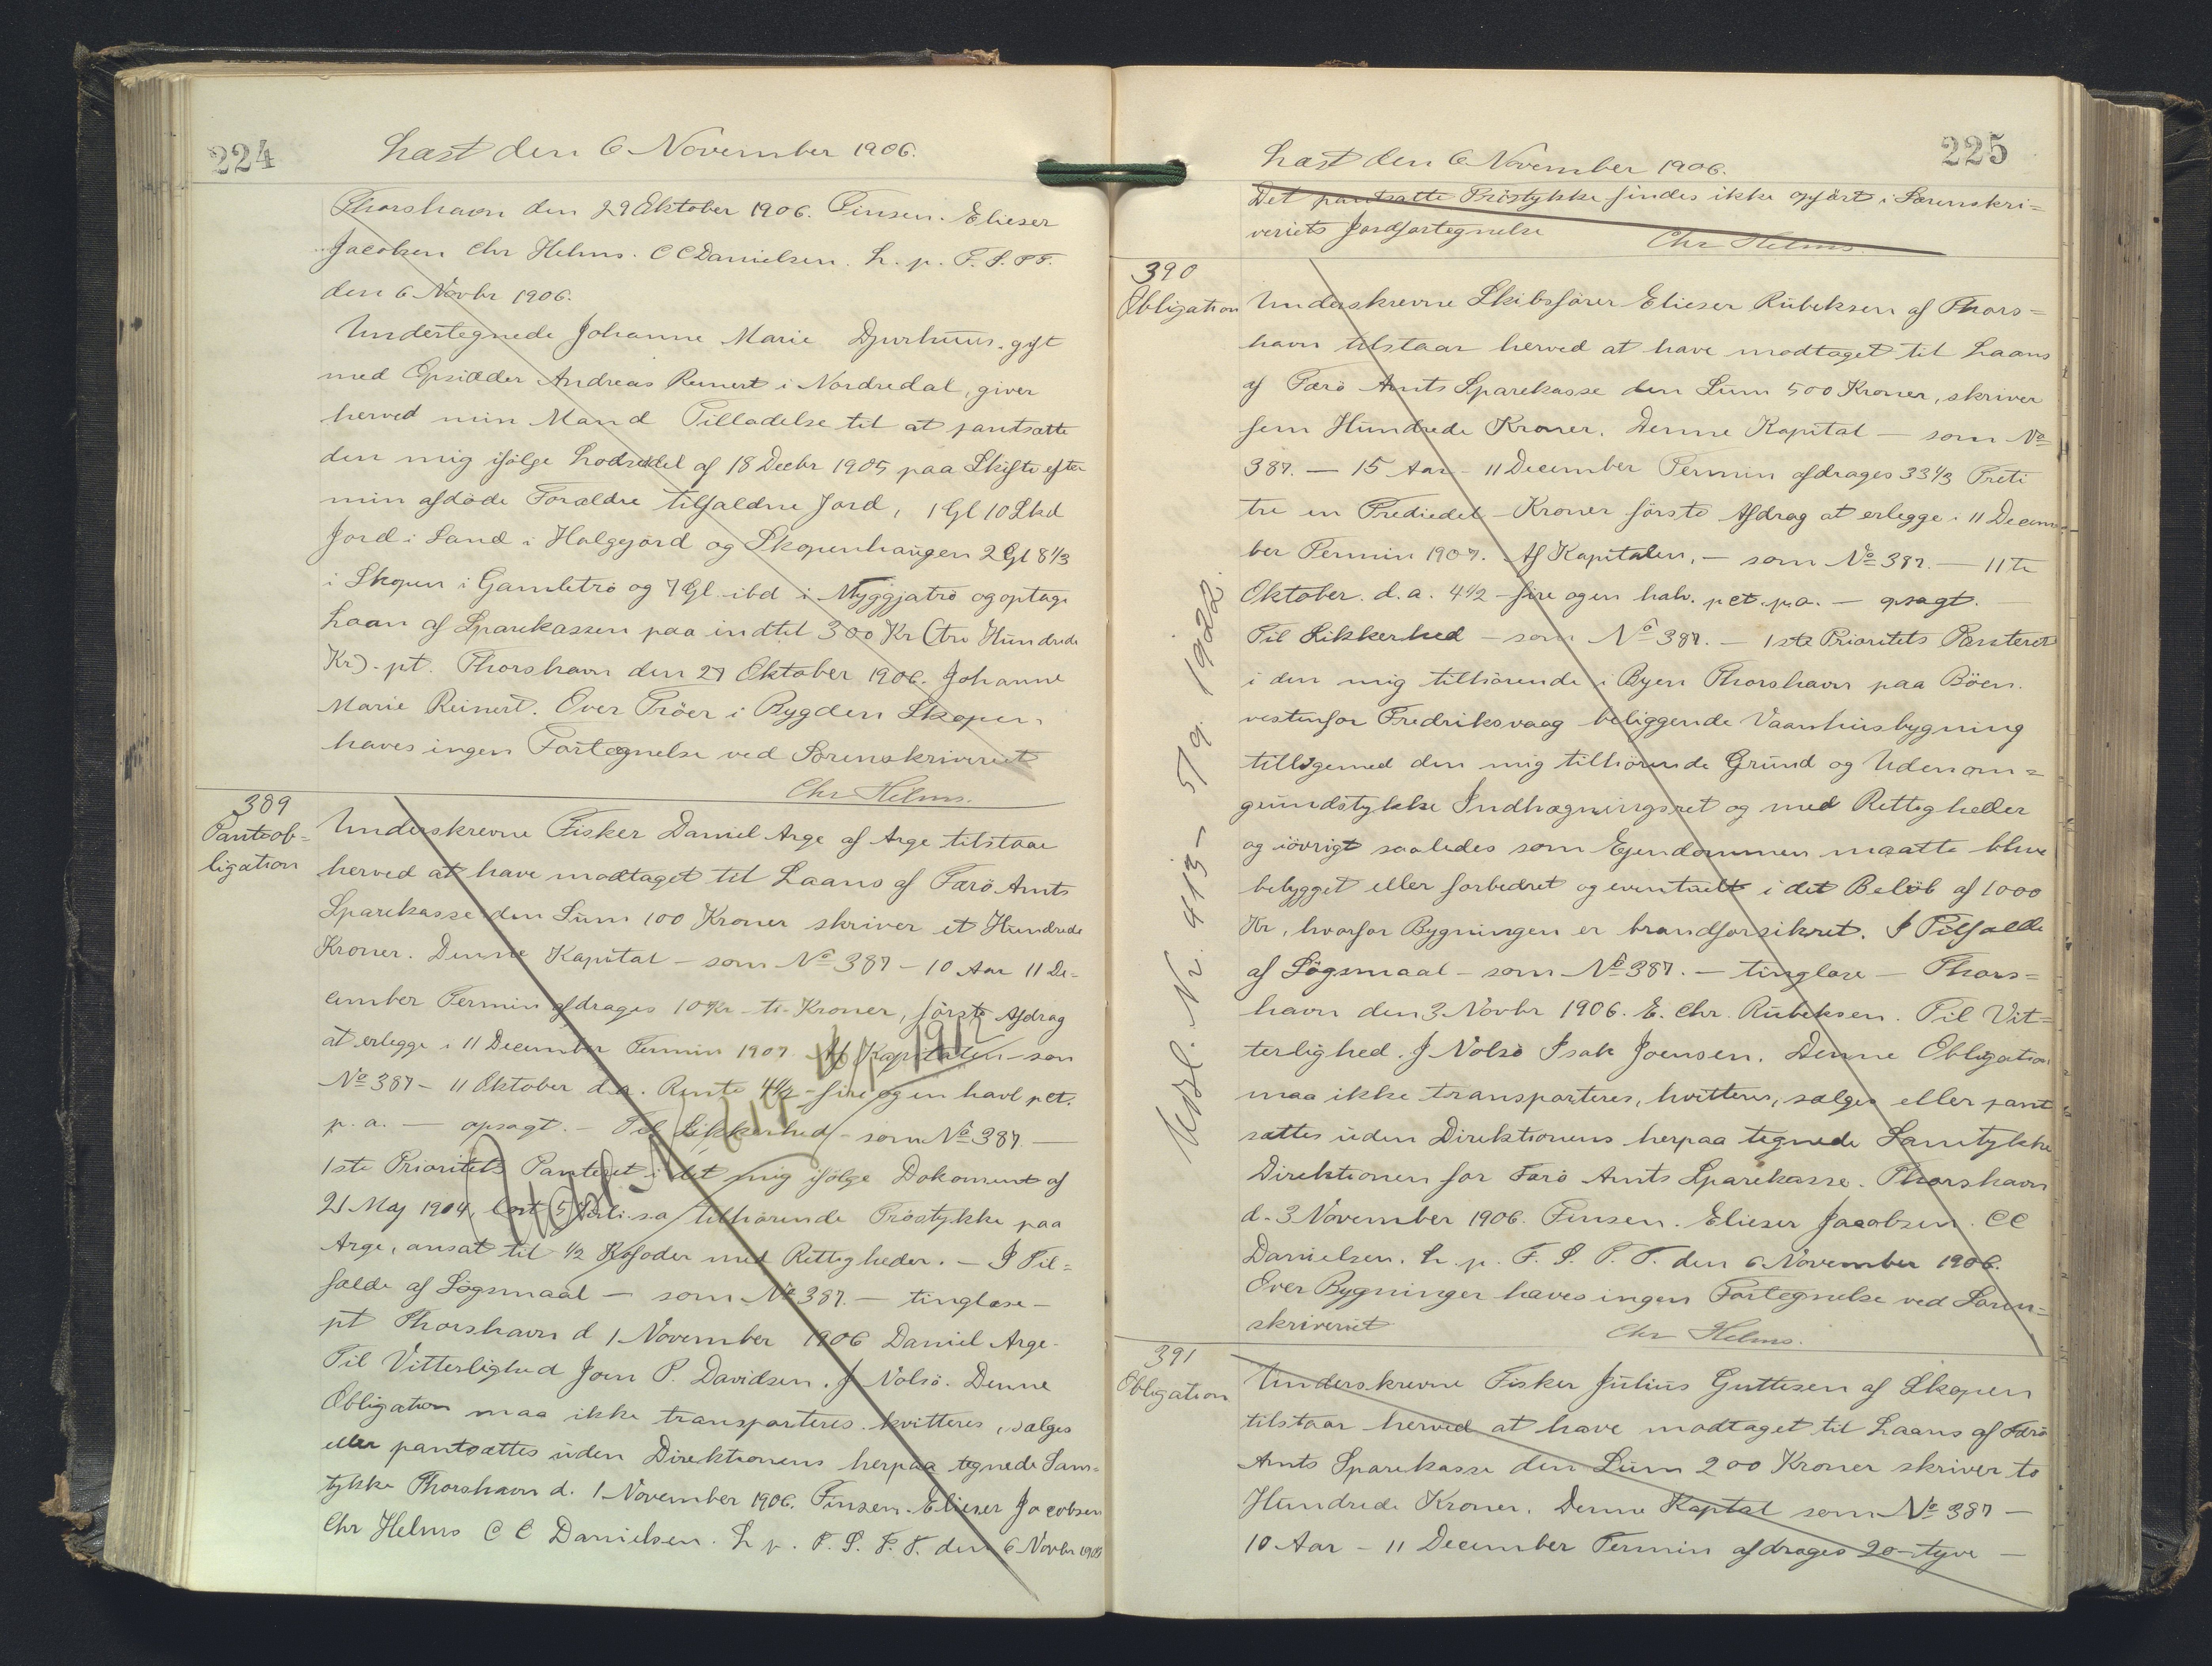 224
Læst den 6 November 1906.
Thorshavn den 29 Oktober 1906. Finsen. Elieser
Jacobsen Chr Helms. C C Danielsen. L. p. F. S. P T.
den 6 Novbr 1906.
Undertegnede Johanne Marie Djurhuus, gift
med Opsidder Andreas Reinert i Nordredal, giver
herved min Mand Tilladelse til at pantsætte
den mig ifölge Lodseddel af 18 Decbr 1905 paa Skifte efter
min afdöde Forældre tilfaldne Jord, 1 Gl 10 Skd
Jord i Sand i Halgegjord og Skopenhaugen 2 Gl 8 1/3
i Skopen i Gamletrö og 7 Gl ibd i Nyggjatrö og optage
Laan af Sparekassen paa indtil 300 Kr (tre Hundrede
Kr). pt. Thorshavn den 27 Oktober 1906. Johanne
Marie Reinert. Over Tröer i Bygden Skopen
haves ingen Fortegnelse ved Sorenskriveriet
Chr Helms.
389
Panteob=
ligation
Underskrevne Fisker Daniel Arge af Arge tilstaar
herved at have modtaget til Laans af Færö Amts
Sparekasse den Sum 100 Kroner skriver et Hundrede
Kroner. Denne Kapital – som No 387 – 10 Aar 11 De-
cember Termin afdrages 10 Kr – ti – Kroner, förste Afdrag
at erlegge i 11 December Termin 1907. Af Kapitalen – som
No 387 – 11 Oktober d. a. Rente 4 1/2 – fire og en halv pct.
p. a. — opsagt. – Til Sikkerhed – som No 387. —
1ste Prioritets Panteret i det mig ifölge Dokument af
21 Maj 1904, læst 5 Juli s. a. tilhörende Tröstykke paa
Arge, ansat til 1/2 Kofoder med Rettigheder. – I Til=
fælde af Sögsmaal – som No 387. — tinglæse –
pt Thorshavn d 1 November 1906 Daniel Arge.
Til Vitterlighed Joen P. Davidsen. J Nolsö. Denne
Obligation maa ikke transporteres, kvitteres, sælges
eller pantsættes uden Direktionens herpaa tegnede Sam=
tykke Thorshavn d. 1 November 1906. Finsen. Elieser Jacobsen
Chr Helms C C Danielsen. L p. F. S. P. T. den 6 Novbr 1906
225
Læst den 6 November 1906.
Det pantsatte Tröstykke findes ikke opfört i Sorenskri=
veriets Jordfortegnelse
Chr Helms
390
Obligation
Underskrevne Skibsförer Elieser Rubeksen af Thors=
havn tilstaar herved at have modtaget til Laans
af Færö Amts Sparekasse den Sum 500 Kroner, skriver
fem Hundrede Kroner. Denne Kapital – som No
387. – 15 Aar – 11 December Termin afdrages 33 1/3 Treti
tre en Trediedel – Kroner förste Afdrag at erlegge i 11 Decem
ber Termin 1907. Af Kapitalen, – som No 387. – 11te
Oktober. d. a. 4 1/2 – fire og en halv. pct. p. a. – opsagt. –
Til Sikkerhed – som No 387. – 1ste Prioritets Panteret
i den mig tilhörende i Byen Thorshavn paa Böen.
vestenfor Fredriksvaag beliggende Vaanhusbygning
tilligemed den mig tilhörende Grund og Udenom=
grundstykke Indhægningsret og med Rettigheder
og iövrigt saaledes som Ejendommen maatte blive
bebygget eller forbedret og eventuelt i det Belöb af 1000
Kr, hvorfor Bygningen er brandforsikret. I Tilfælde
af Sögsmaal – som No 387. – tinglæse – Thors=
havn den 3 Novbr 1906. E. Chr. Rubeksen. Til Vit=
terlighed. J Nolsö Isak Joensen. Denne Obligation
maa ikke transporteres, kvitteres, sælges eller pant
sættes uden Direktionens herpaa tegnede Samtykke
Direktionen for Færö Amts Sparekasse. Thorshavn
d. 3 November 1906. Finsen. Elieser Jacobsen. CC
Danielsen. L. p. F. S. P. T. den 6 November 1906.
Over Bygninger haves ingen Fortegnelse ved Soren=
skriveriet
Chr Helms.
Udsl. Nr. 413 – 5/9. 1922.
391
Obligation
Underskrevne Fisker Julius Guttesen af Skopen
tilstaar herved at have modtaget til Laans af Færö
Amts Sparekasse den Sum 200 Kroner skriver to
Hundrede Kroner. Denne Kaptal som No 387 –
10 Aar – 11 December Termin afdrages 20 – tyve –